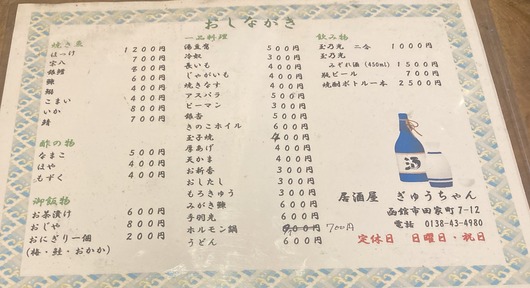 おしながき
焼き魚
ほっけ 1200円
宗八 700円
銀鱈 800円
鰊 600円
鰯 400円
こまい 400円
いか 800円
鯖 700円
酢の物
なまこ 500円
ほや 400円
もずく 400円
御飯物
お茶漬け 600円
おじや 600円
おにぎり一個 200円
(梅・鮭・おかか)
一品料理
湯豆腐 500円
冷奴 300円
長いも 400円
じゃがいも 400円
焼きなす 400円
アスパラ 500円
ピーマン 300円
銀杏 500円
きのこホイル 600円
玉子焼 400円
厚あげ 400円
天かま 400円
お新香 300円
おしたし 300円
もろきゅう 300円
みがき鰊 600円
手羽先 600円
ホルモン鍋 700円
うどん 600円
飲み物
玉乃光 二合 1000円
玉乃光
みぞれ酒(450ml) 1500円
瓶ビール 700円
焼酎ボトル一本 2500円
酒
居酒屋 ぎゅうちゃん
函館市田家町7-12
電話 0138-43-4980
定休日 日曜日・祝日